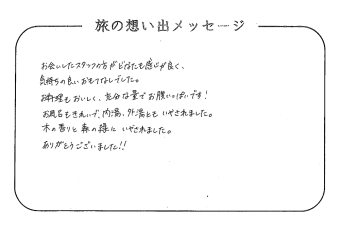 旅の想い出メッセージ
お会いしたスタッフの方がどなたも感じが良く、
気持ちの良いおもてなしでした。
お料理もおいしく、充分な量でお腹いっぱいです!
お風呂もきれいで、内湯、外湯ともいやされました。
木の香りと森の緑にいやされました。
ありがとうございました!!